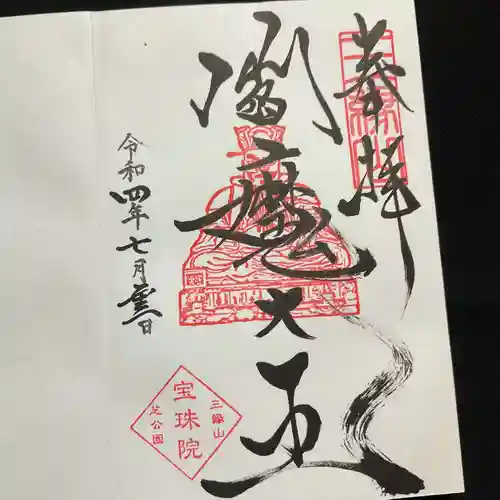 奉拝
閻魔大王
令和四年七月
日
三縁山
宝珠院
芝公園